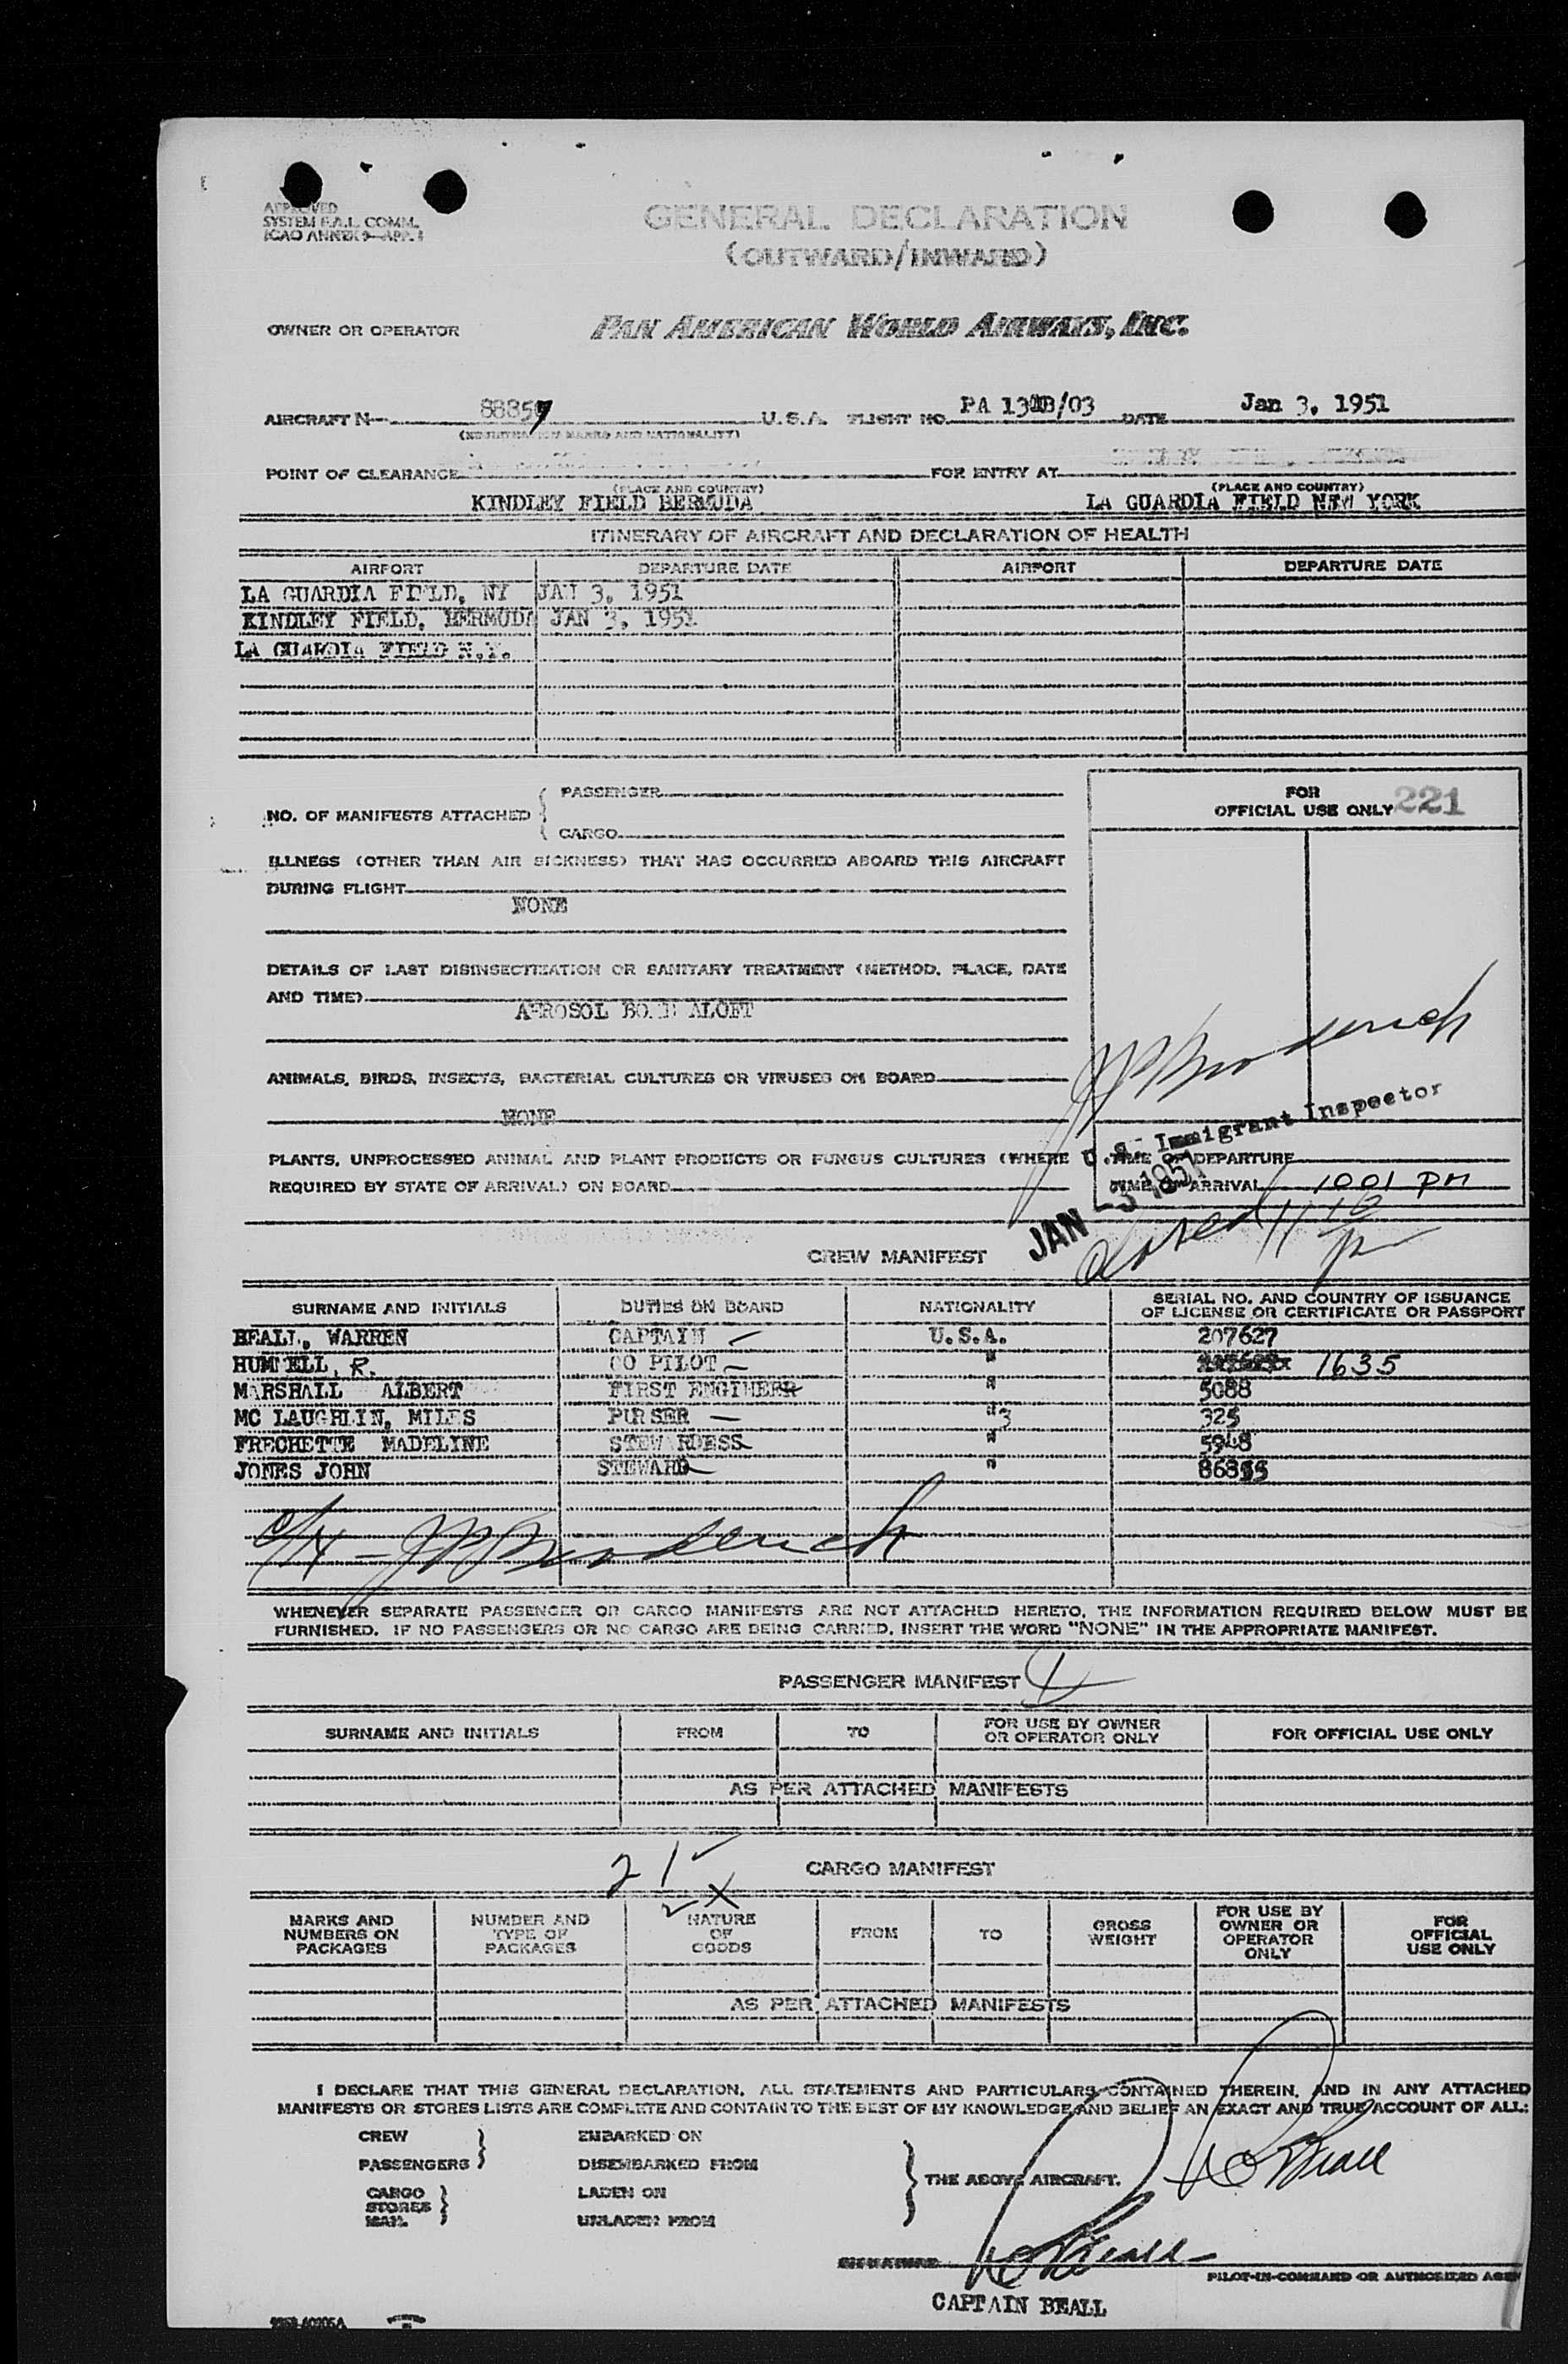 APPROVED
SYSTEM F.A.L. COMM.
ICAO ANNEX 9—APP. 1
GENERAL DECLARATION
(OUTWARD/INWARD)
OWNER OR OPERATOR PAN AMERICAN WORLD AIRWAYS, INC.
AIRCRAFT N— 88857 U.S.A. FLIGHT NO. PA 131/03 DATE Jan 3, 1951
(REGISTRATION MARKS AND NATIONALITY)
POINT OF CLEARANCE FOR ENTRY AT
(PLACE AND COUNTRY) (PLACE AND COUNTRY)
KINDLEY FIELD BERMUDA LA GUARDIA FIELD NEW YORK
ITINERARY OF AIRCRAFT AND DECLARATION OF HEALTH
AIRPORT DEPARTURE DATE AIRPORT DEPARTURE DATE
LA GUARDIA FIELD, NY JAN 3, 1951
KINDLEY FIELD, BERMUDA JAN 3, 1951
LA GUARDIA FIELD N.Y.
NO. OF MANIFESTS ATTACHED { PASSENGER
CARGO
FOR
OFFICIAL USE ONLY 221
ILLNESS (OTHER THAN AIR SICKNESS) THAT HAS OCCURRED ABOARD THIS AIRCRAFT
DURING FLIGHT
NONE
DETAILS OF LAST DISINSECTIZATION OR SANITARY TREATMENT (METHOD, PLACE, DATE
AND TIME)
AEROSOL BOMB ALOFT
JP Broderick
ANIMALS, BIRDS, INSECTS, BACTERIAL CULTURES OR VIRUSES ON BOARD
NONE
U.S. Immigrant Inspector
PLANTS, UNPROCESSED ANIMAL AND PLANT PRODUCTS OR FUNGUS CULTURES (WHERE
REQUIRED BY STATE OF ARRIVAL) ON BOARD
TIME OF DEPARTURE
TIME OF ARRIVAL 1001 PM
JAN -3 1951
closed 11 10 p
CREW MANIFEST
SURNAME AND INITIALS DUTIES ON BOARD NATIONALITY SERIAL NO. AND COUNTRY OF ISSUANCE
OF LICENSE OR CERTIFICATE OR PASSPORT
BEALL, WARREN CAPTAIN U.S.A. 207627
HUMMELL, R. CO PILOT " 1635
MARSHALL ALBERT FIRST ENGINEER " 5088
MC LAUGHLIN, MILES PURSER " 3 325
FRECHETTE MADELINE STEWARDESS " 5948
JONES JOHN STEWARD "
JP Broderick
WHENEVER SEPARATE PASSENGER OR CARGO MANIFESTS ARE NOT ATTACHED HERETO, THE INFORMATION REQUIRED BELOW MUST BE
FURNISHED. IF NO PASSENGERS OR NO CARGO ARE BEING CARRIED, INSERT THE WORD "NONE" IN THE APPROPRIATE MANIFEST.
PASSENGER MANIFEST
SURNAME AND INITIALS FROM TO FOR USE BY OWNER
OR OPERATOR ONLY FOR OFFICIAL USE ONLY
AS PER ATTACHED MANIFESTS
21
CARGO MANIFEST
MARKS AND
NUMBERS ON
PACKAGES NUMBER AND
TYPE OF
PACKAGES NATURE
OF
GOODS FROM TO GROSS
WEIGHT FOR USE BY
OWNER OR
OPERATOR
ONLY FOR
OFFICIAL
USE ONLY
AS PER ATTACHED MANIFESTS
I DECLARE THAT THIS GENERAL DECLARATION, ALL STATEMENTS AND PARTICULARS CONTAINED THEREIN, AND IN ANY ATTACHED
MANIFESTS OR STORES LISTS ARE COMPLETE AND CONTAIN TO THE BEST OF MY KNOWLEDGE AND BELIEF AN EXACT AND TRUE ACCOUNT OF ALL:
CREW EMBARKED ON
PASSENGERS DISEMBARKED FROM
THE ABOVE AIRCRAFT.
CARGO LADEN ON
STORES
MAIL UNLADEN FROM
W Beall
SIGNATURE W Beall
PILOT-IN-COMMAND OR AUTHORIZED AGEN
CAPTAIN BEALL